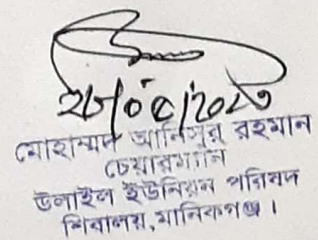 মোহাম্মদ আনিসুর রহমান
চেয়ারম্যান
উলাইল ইউনিয়ন পরিষদ
শিবালয়, মানিকগঞ্জ।